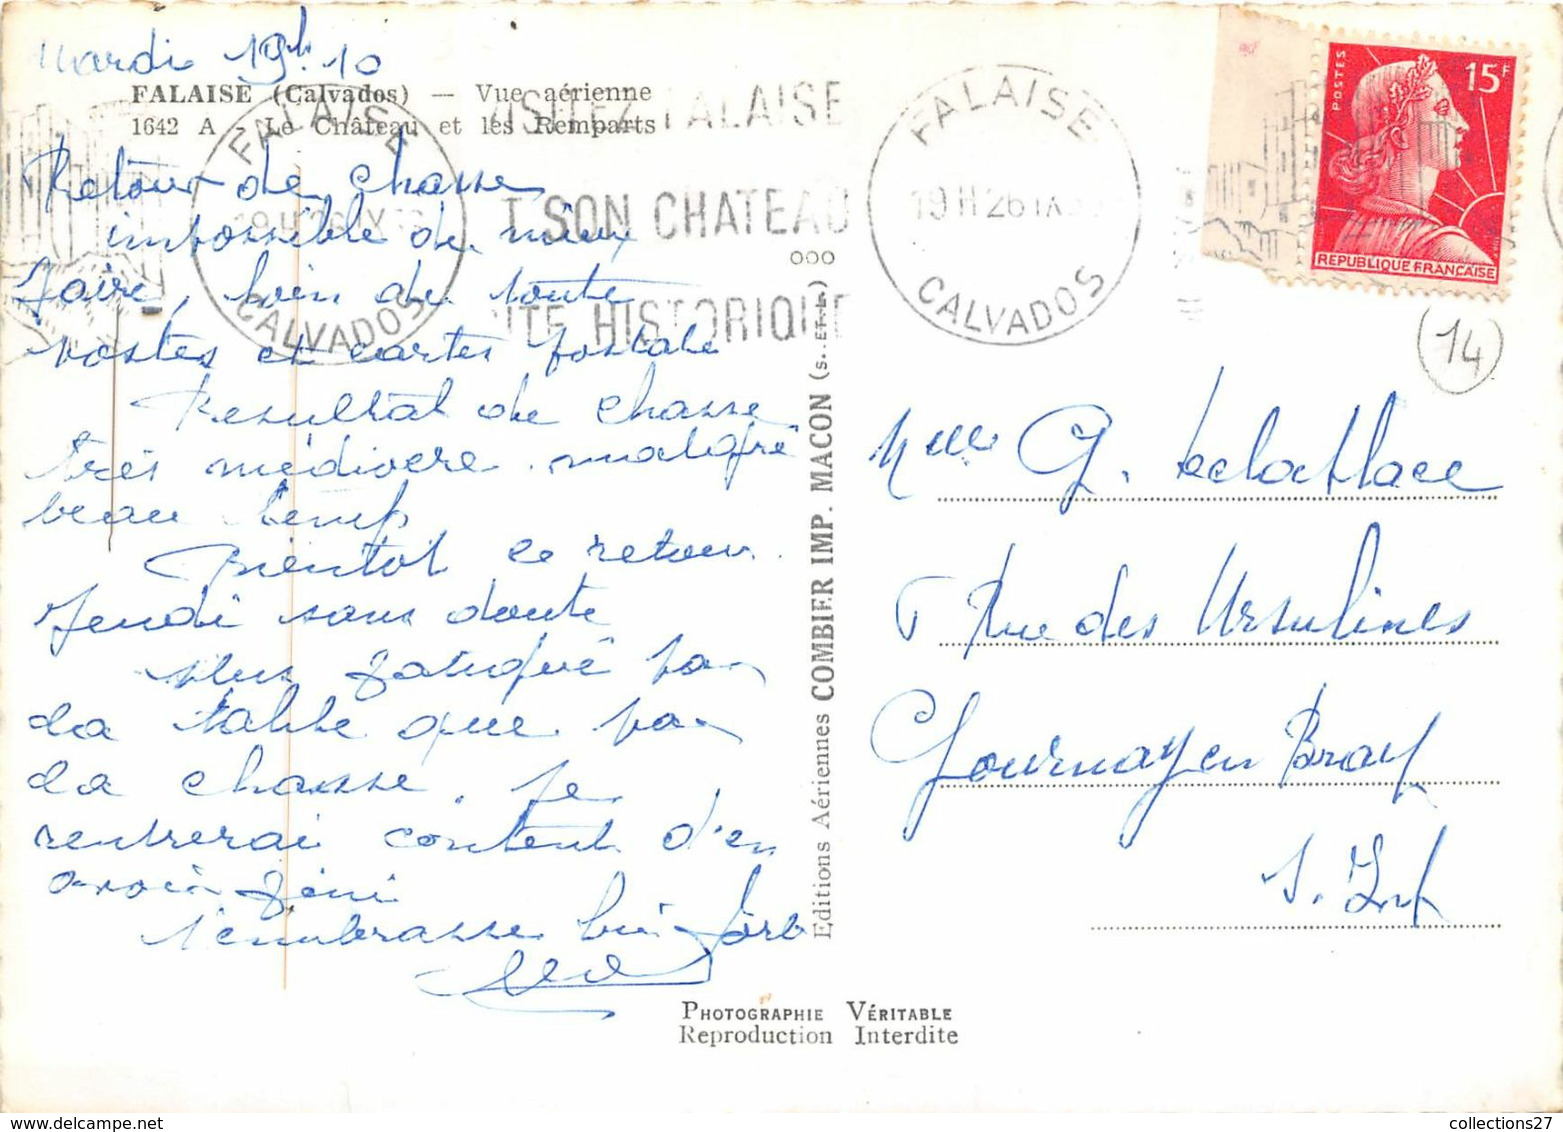 Mardi 19h 10
FALAISE (Calvados) — Vue aérienne
1642 A - Le Château et les Remparts
Retour de chasse
impossible de mieux
faire, loin de toute
postes et cartes postale
Resultat de chasse
très médiocre malgré
beau temps
Bientot le retour
Jeudi sans doute
plus fatigué par
la table que par
la chasse. Je
rentrerai content d'en
avoir fini
T'embrasse bien fort
VISITEZ FALAISE
ET SON CHATEAU
SITE HISTORIQUE
FALAISE
19H 26 IX
CALVADOS
FALAISE
19H 26 IX
CALVADOS
POSTES
15F
REPUBLIQUE FRANÇAISE
14
Melle G. Leclaplace
Rue des Ursulines
Gournay en Bray
S. Inf
Editions Aériennes COMBIER IMP. MACON (S. ET-L.)
ooo
PHOTOGRAPHIE VÉRITABLE
Reproduction Interdite
collections27